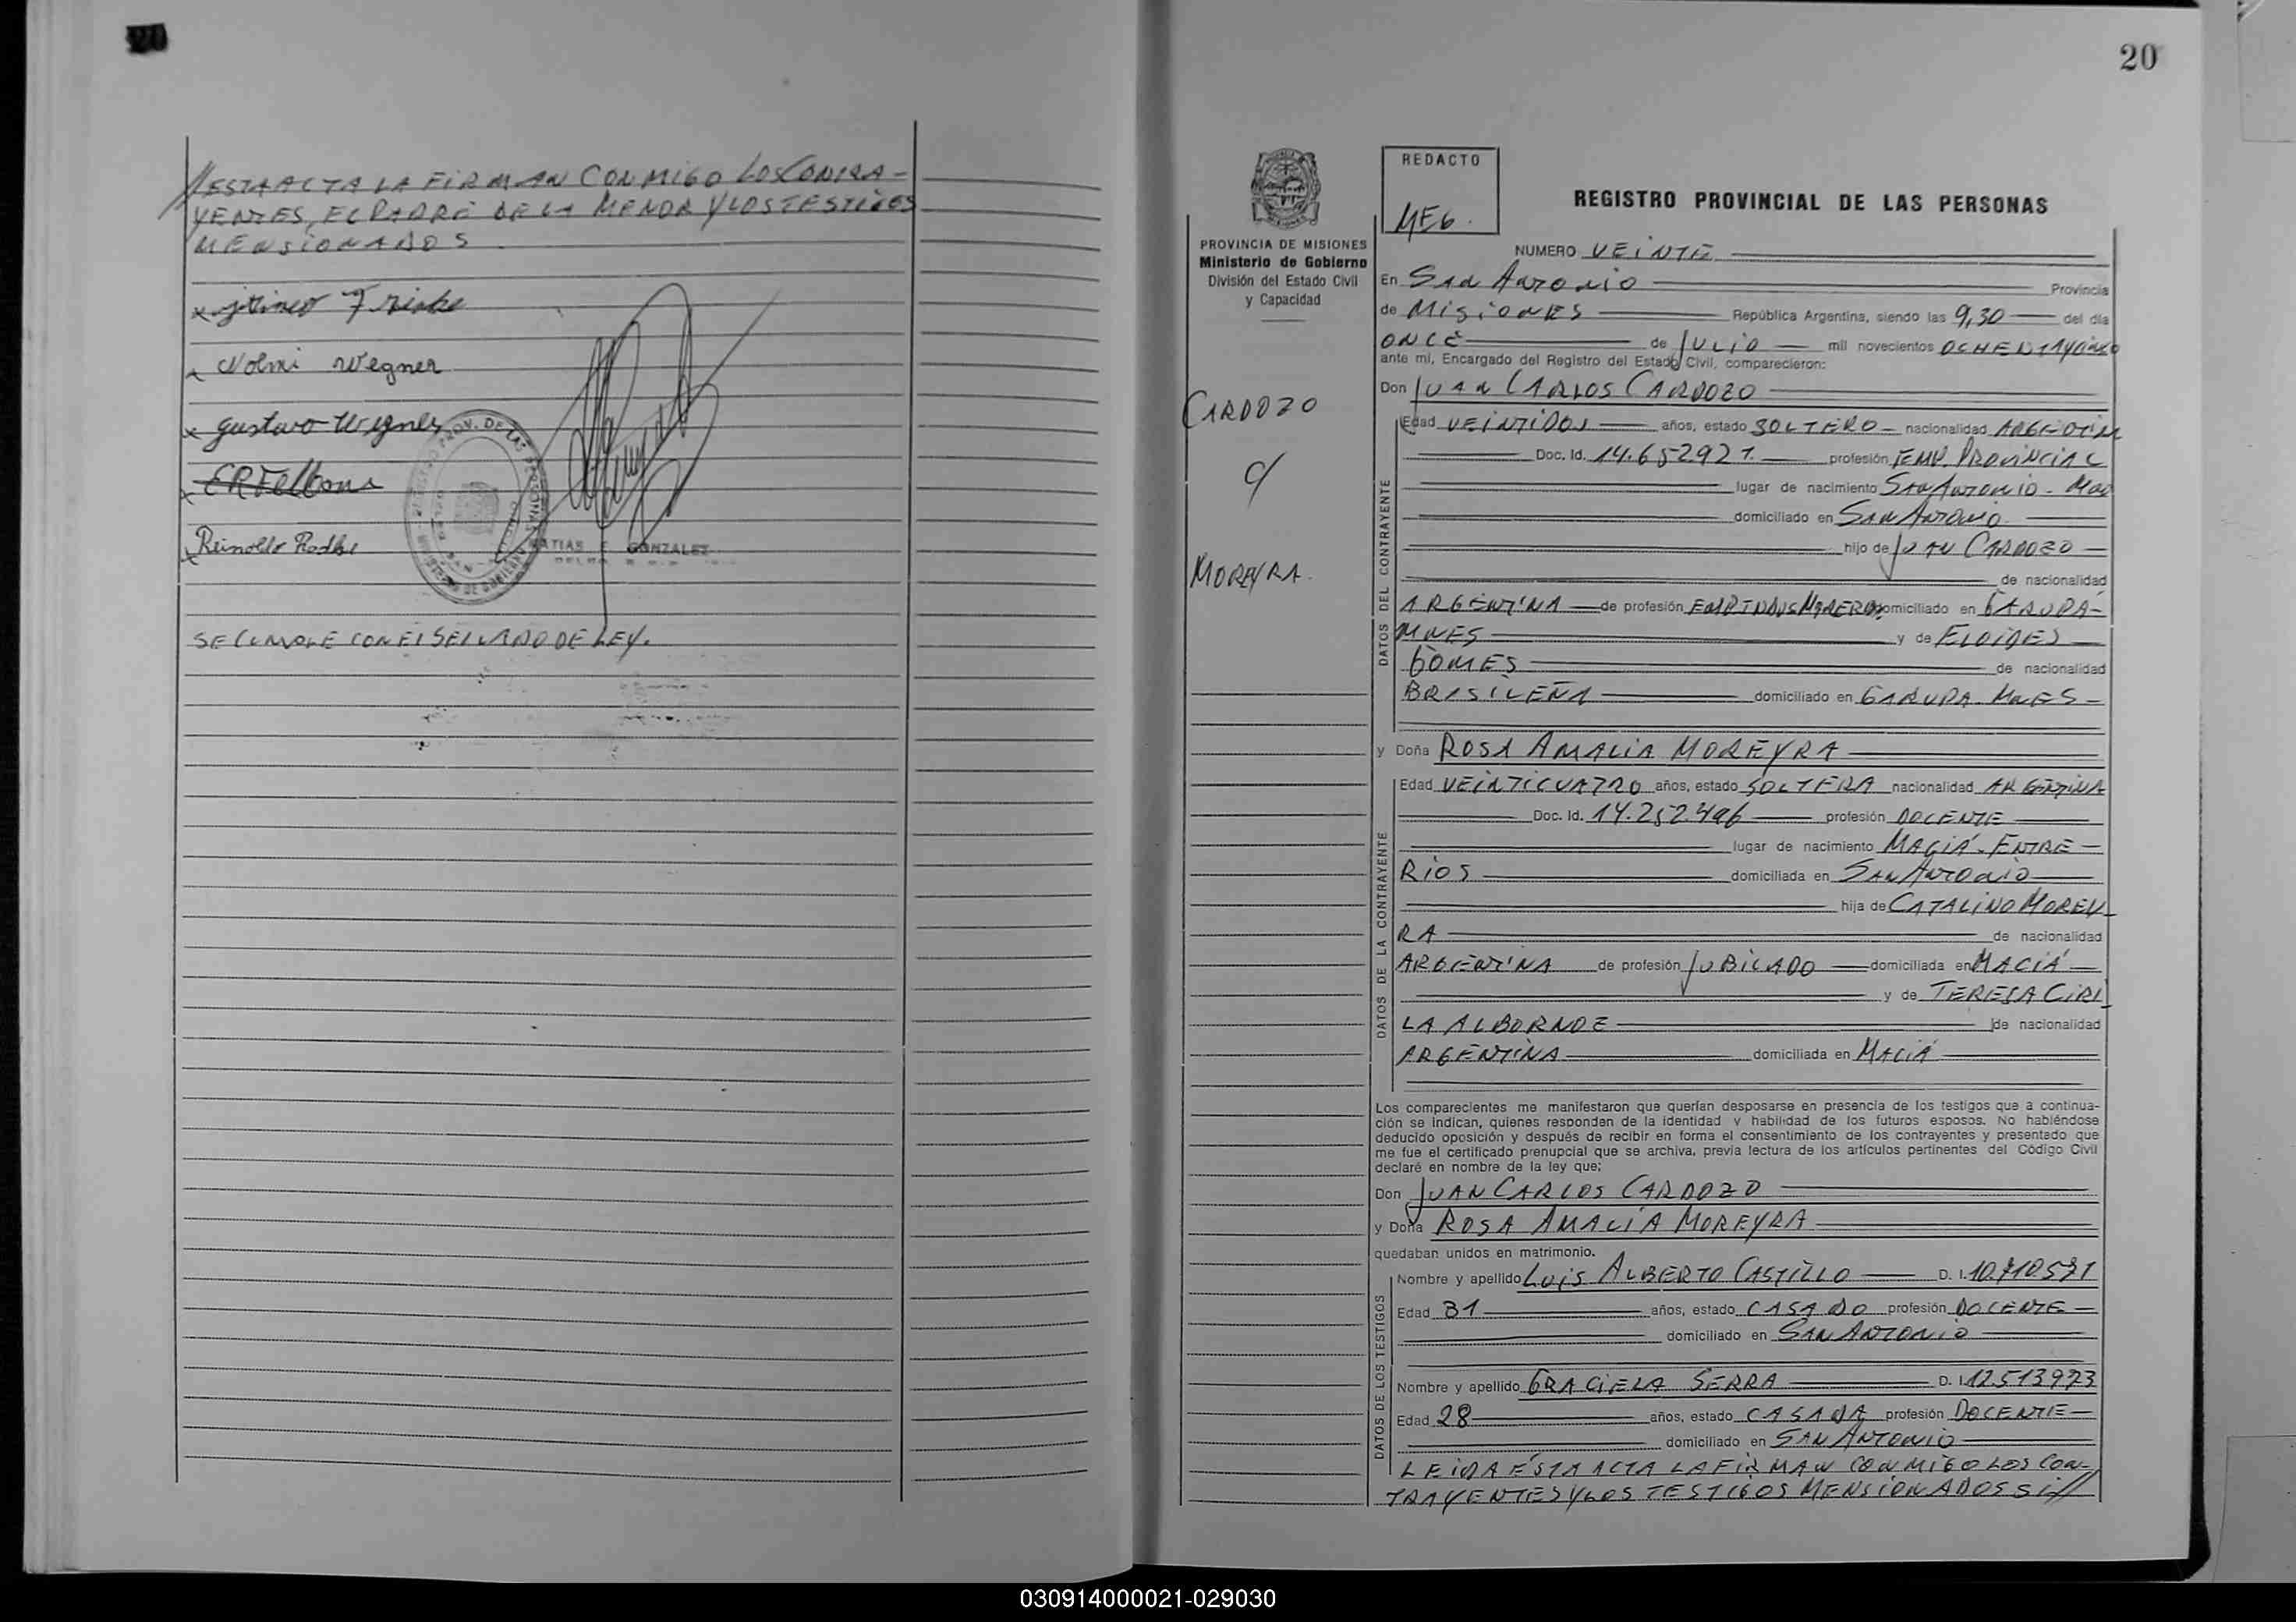 //ESTA ACTA LA FIRMAN CONMIGO LOS CONTRA-
YENTES, EL PADRE DE LA MENOR Y LOS TESTIGOS
MENSIONADOS
x Fricke
x Nolmi Wegner
x Gustavo Wegner
x
x Reinoldo Radke
GONZALEZ
SE CUMPLE CON EL SELLADO DE LEY.
20
REDACTO
MEG.
REGISTRO PROVINCIAL DE LAS PERSONAS
PROVINCIA DE MISIONES
Ministerio de Gobierno
División del Estado Civil
y Capacidad
CARDOZO
c/
MOREYRA.
NUMERO VEINTE
En SAN ANTONIO Provincia
de MISIONES República Argentina, siendo las 9,30 del día
ONCE de JULIO mil novecientos OCHENTAYCINCO
ante mí, Encargado del Registro del Estado Civil, comparecieron:
Don JUAN CARLOS CARDOZO
DATOS DEL CONTRAYENTE
Edad VEINTIDOS años, estado SOLTERO nacionalidad ARGENTIN
Doc. Id. 14.652927. profesión EMP. PROVINCIAL
lugar de nacimiento SAN ANTONIO - 
domiciliado en SAN ANTONIO
hijo de JUAN CARDOZO
de nacionalidad
ARGENTINA de profesión domiciliado en GARUPA-
MNES y de ELOIDES
GOMES de nacionalidad
BRASILEÑA domiciliado en GARUPA. MNES
y Doña ROSA AMALIA MOREYRA
DATOS DE LA CONTRAYENTE
Edad VEINTICUATRO años, estado SOLTERA nacionalidad ARGENTINA
Doc. Id. 14.252.496 profesión DOCENTE
lugar de nacimiento MACIÁ. ENTRE
RIOS domiciliada en SAN ANTONIO
hija de CATALINO MOREY
RA de nacionalidad
ARGENTINA de profesión JUBILADO domiciliada en MACIÁ
y de TERESA CIRI
LA ALBORNOZ de nacionalidad
ARGENTINA domiciliada en MACIÁ
Los comparecientes me manifestaron que querían desposarse en presencia de los testigos que a continua-
ción se indican, quienes responden de la identidad y habilidad de los futuros esposos. No habiéndose
deducido oposición y después de recibir en forma el consentimiento de los contrayentes y presentado que
me fue el certificado prenupcial que se archiva, previa lectura de los artículos pertinentes del Código Civil
declaré en nombre de la ley que:
Don JUAN CARLOS CARDOZO
y Doña ROSA AMALIA MOREYRA
quedaban unidos en matrimonio.
DATOS DE LOS TESTIGOS
Nombre y apellido LUIS ALBERTO CASTILLO D. I.
Edad 31 años, estado CASADO profesión DOCENTE
domiciliado en SAN ANTONIO
Nombre y apellido GRACIELA SERRA D. I. 12513973
Edad 28 años, estado CASADA profesión DOCENTE
domiciliado en SAN ANTONIO
LEIDA ÉSTA ACTA LA FIRMAN CONMIGO LOS CON-
TRAYENTES Y LOS TESTIGOS MENSIONADOS SI//
030914000021-029030